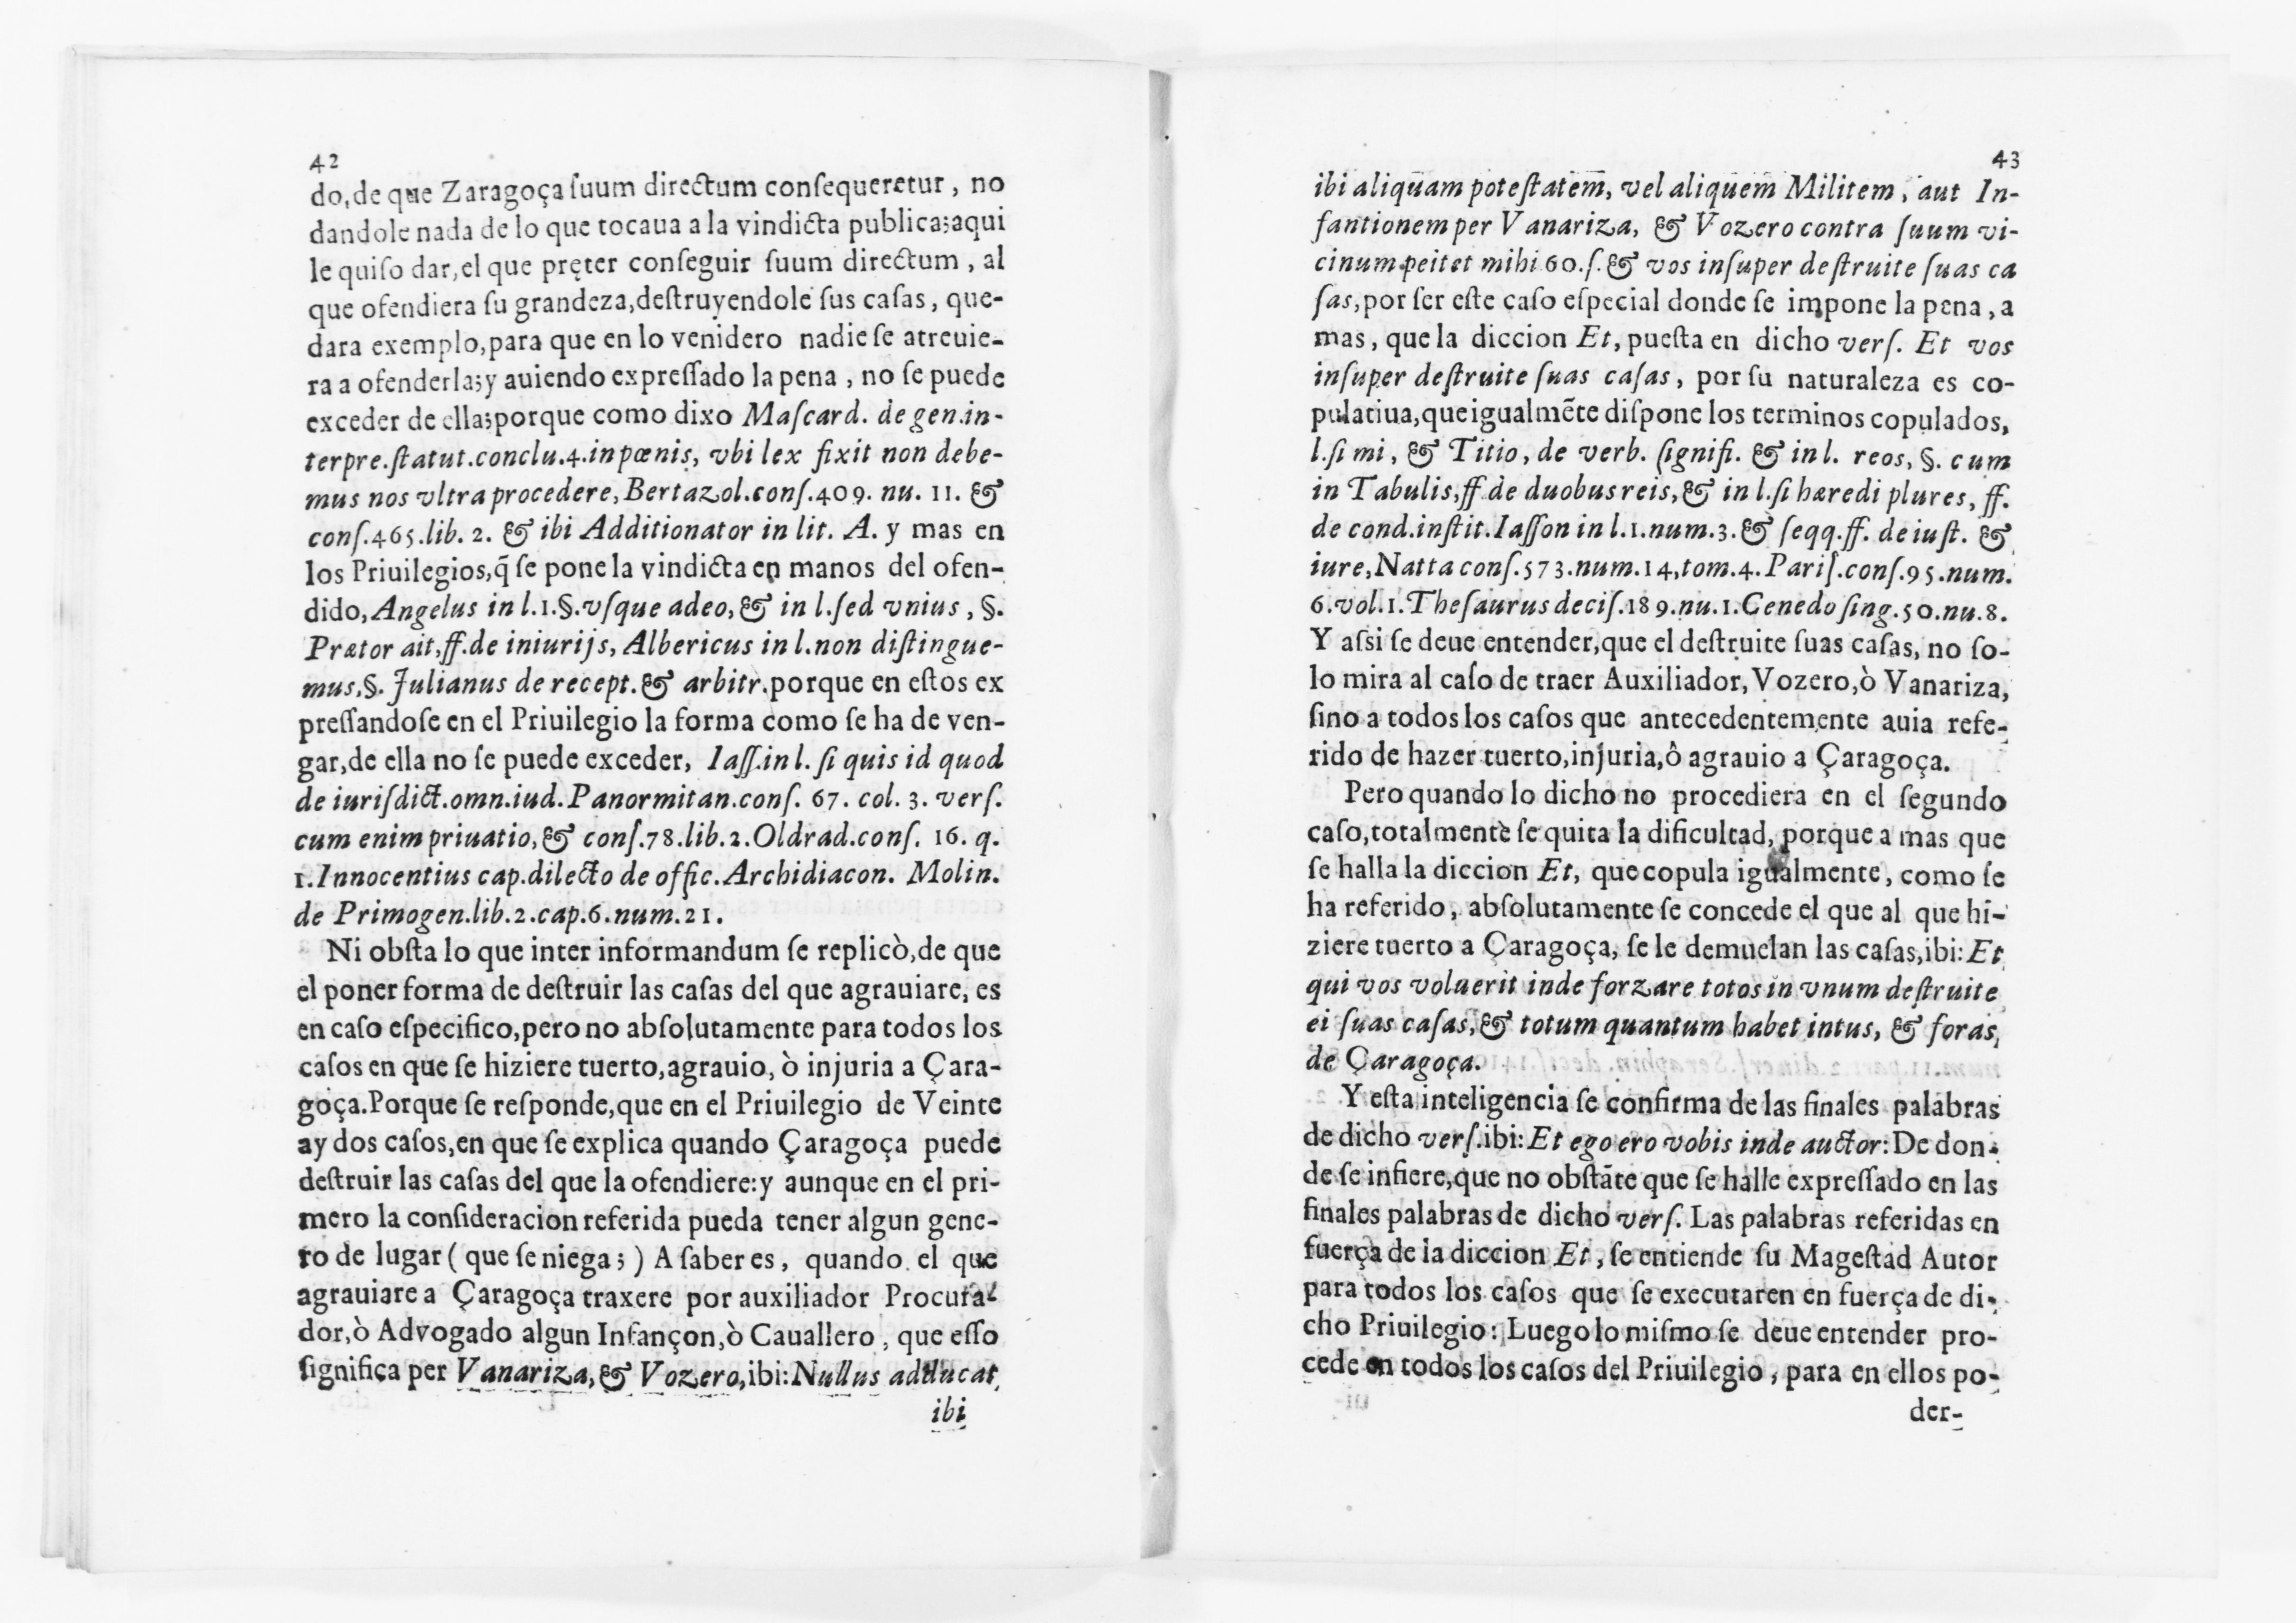 42
do,de que Zaragoça ſuum directum conſequeretur, no
dandole nada de lo que tocaua a la vindicta publica;aqui
le quiſo dar,el que pręter conſeguir ſuum directum, al
que ofendiera ſu grandeza,deſtruyendole ſus caſas, que-
dara exemplo,para que en lo venidero nadie ſe atreuie-
ra a ofenderla;y auiendo expreſſado la pena, no ſe puede
exceder de ella;porque como dixo Maſcard. de gen.in-
terpre.ſtatut.conclu.4.in pœnis, vbi lex fixit non debe-
mus nos vltra procedere, Bertazol.conſ.409. nu. 11. &
conſ.465.lib. 2. & ibi Additionator in lit. A. y mas en
los Priuilegios,q̃ ſe pone la vindicta en manos del ofen-
dido, Angelus in l.1.§.vſque adeo,& in l.ſed vnius, §.
Prætor ait,ff.de iniurijs, Albericus in l.non diſtingue-
mus,§. Julianus de recept.& arbitr.porque en eſtos ex
preſſandoſe en el Priuilegio la forma como ſe ha de ven-
gar,de ella no ſe puede exceder, Iaſſ.in l. ſi quis id quod
de iuriſdict.omn.iud.Panormitan.conſ. 67. col. 3. verſ.
cum enim priuatio,& conſ.78.lib.2.Oldrad.conſ. 16. q.
1.Innocentius cap.dilecto de offic.Archidiacon. Molin.
de Primogen.lib.2.cap.6.num.21.
Ni obſta lo que inter informandum ſe replicò,de que
el poner forma de deſtruir las caſas del que agrauiare, es
en caſo eſpecifico,pero no abſolutamente para todos los
caſos en que ſe hiziere tuerto,agrauio, ò injuria a Çara-
goça.Porque ſe reſponde,que en el Priuilegio de Veinte
ay dos caſos,en que ſe explica quando Çaragoça puede
deſtruir las caſas del que la ofendiere:y aunque en el pri-
mero la conſideracion referida pueda tener algun gene-
ro de lugar ( que ſe niega; ) A ſaber es, quando el que
agrauiare a Çaragoça traxere por auxiliador Procura-
dor,ò Advogado algun Infançon,ò Cauallero, que eſſo
ſignifica per Vanariza,& Vozero,ibi:Nullus adducat
ibi
43
ibi aliquam poteſtatem, vel aliquem Militem, aut In-
fantionem per Vanariza, & Vozero contra ſuum vi-
cinum.peitet mihi 60.ſ.& vos inſuper deſtruite ſuas ca
ſas,por ſer eſte caſo eſpecial donde ſe impone la pena, a
mas, que la diccion Et, pueſta en dicho verſ. Et vos
inſuper deſtruite ſuas caſas, por ſu naturaleza es co-
pulatiua,que igualmẽte diſpone los terminos copulados,
l.ſi mi, & Titio, de verb. ſignifi. & in l. reos, §. cum
in Tabulis,ff.de duobus reis,& in l.ſi hæredi plures, ff.
de cond.inſtit.Iaſſon in l.1.num.3.& ſeqq.ff. de iuſt. &
iure,Natta conſ.573.num.14,tom.4.Pariſ.conſ.95.num.
6.vol.1.Theſaurus deciſ.189.nu.1.Cenedo ſing.50.nu.8.
Y aſsi ſe deue entender,que el deſtruite ſuas caſas, no ſo-
lo mira al caſo de traer Auxiliador, Vozero,ò Vanariza,
ſino a todos los caſos que antecedentemente auia refe-
rido de hazer tuerto,injuria,ô agrauio a Çaragoça.
Pero quando lo dicho no procediera en el ſegundo
caſo,totalmente ſe quita la dificultad, porque a mas que
ſe halla la diccion Et, que copula igualmente, como ſe
ha referido, abſolutamente ſe concede el que al que hi-
ziere tuerto a Çaragoça, ſe le demuelan las caſas,ibi: Et
qui vos voluerit inde forzare totos in vnum deſtruite
ei ſuas caſas,& totum quantum habet intus, & foras,
de Çaragoça.
Y eſta inteligencia ſe confirma de las finales palabras
de dicho verſ.ibi: Et ego ero vobis inde auctor: De don-
de ſe infiere,que no obſtãte que ſe halle expreſſado en las
finales palabras de dicho verſ. Las palabras referidas en
fuerça de la diccion Et, ſe entiende ſu Mageſtad Autor
para todos los caſos que ſe executaren en fuerça de di-
cho Priuilegio: Luego lo miſmo ſe deue entender pro-
cede en todos los caſos del Priuilegio, para en ellos po-
der-